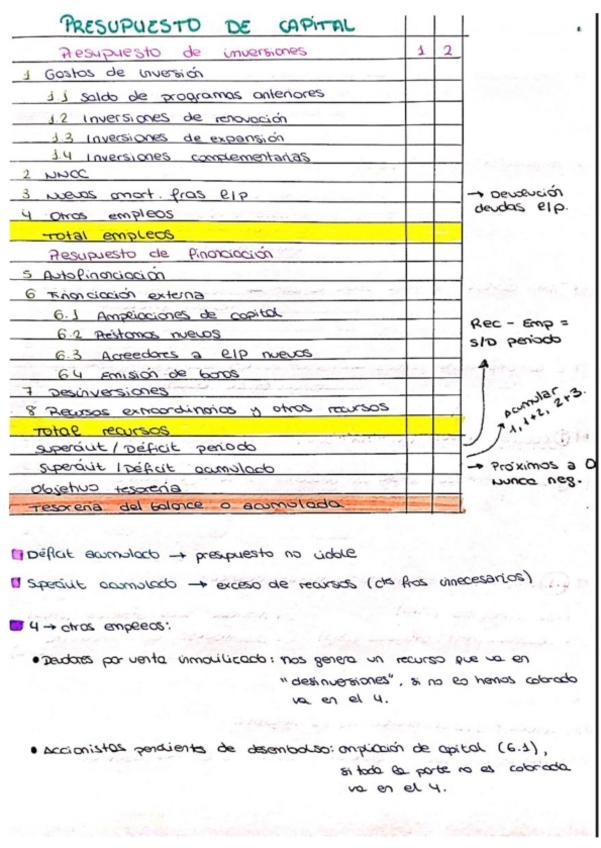 PRESUPUESTO DE CAPITAL
Presupuesto de inversiones 1 2
1 Gastos de inversión
1.1 Saldo de programas anteriores
1.2 Inversiones de renovación
1.3 Inversiones de expansión
1.4 Inversiones complementarias
2 NNCC
3 Nuevos amort. fras elp
4 Otros empleos
→ Devolución
deudas elp.
Total empleos
Presupuesto de financiación
5 Autofinanciación
6 Financiación externa
6.1 Ampliaciones de capital
6.2 Préstamos nuevos
6.3 Acreedores a elp nuevos
6.4 Emisión de bonos
Rec - Emp =
S/D periodo
7 Desinversiones
8 Recursos extraordinarios y otros recursos
Acumular
1, 1+2, 2+3.
Total recursos
Superávit / Déficit periodo
Superávit / Déficit acumulado
→ Próximos a 0
nunca neg.
Objetivo tesorería
Tesorería del balance o acumulada
Déficit acumulado → presupuesto no viable
Superávit acumulado → exceso de recursos (cts fros innecesarios)
4 → otros empleos:
• Deudores por venta inmovilizado: nos genera un recurso que va en
"desinversiones", si no lo hemos cobrado
va en el 4.
• Accionistas pendientes de desembolso: ampliación de capital (6.1),
si toda la parte no es cobrada
va en el 4.